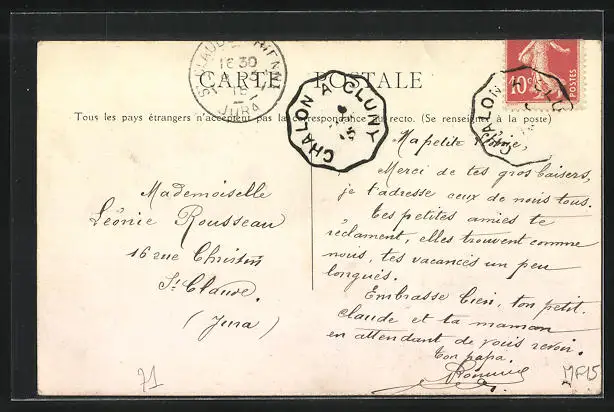 CARTE POSTALE
Tous les pays étrangers n'acceptent pas la correspondance au recto. (Se renseigner à la poste)
JURA
18 30
CHALON A CLUNY
CHALON A CLU
10c
POSTES
Mademoiselle
Léonie Rousseau
16 rue
St Claude.
(Jura)
Ma petite
Merci de tes gros baisers,
je t'adresse ceux de nous tous.
Tes petites amies te
réclament, elles trouvent comme
nous, tes vacances un peu
longues.
Embrasse bien, ton petit
Claude et ta maman
en attendant de vous revoir.
Ton papa.
71
MF15